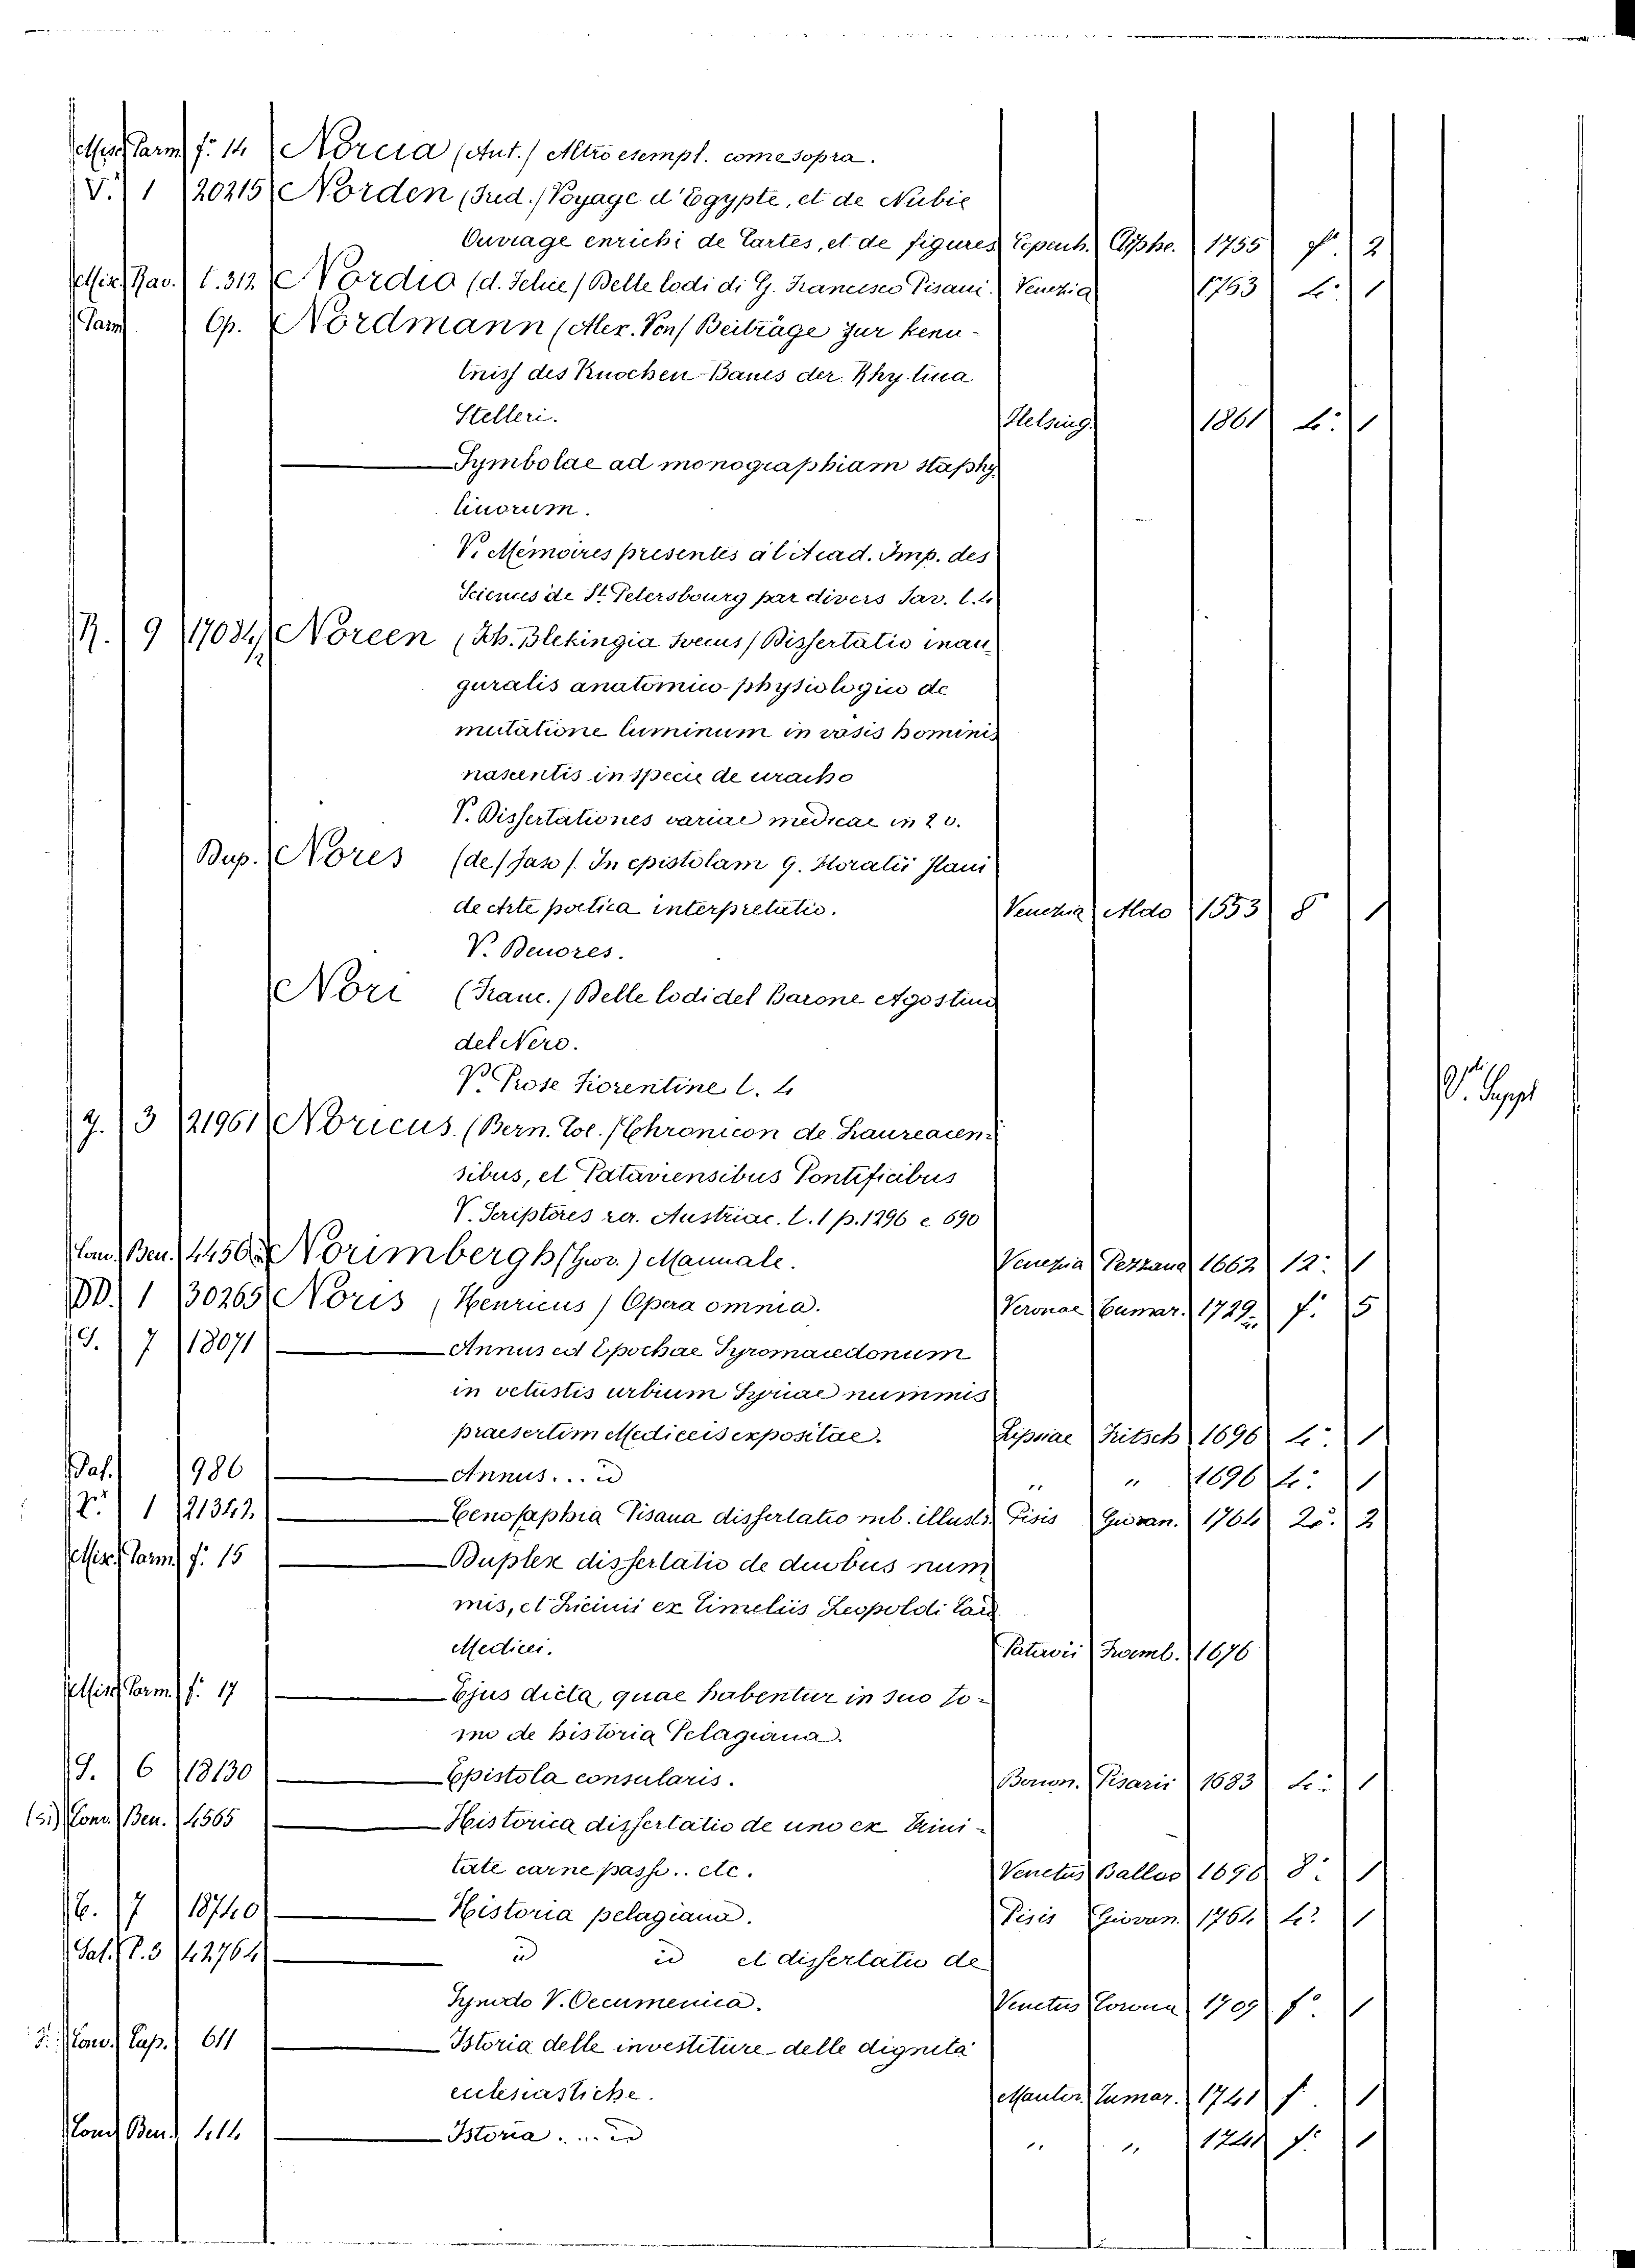 Misc. Parm. f.º 14 Norcia (Ant.) Altro esempl. come sopra.
V. 1 20215 Norden (Frid.) Voyage d'Egypte, et de Nubie
Ouvrage enrichi de Cartes, et de figures Copenh. Orphe. 1755 f.º 2
Misc. Rav. t. 312 Nordio (d. Felice) Delle lodi di G. Francesco Pisani. Venezia 1753 4.º 1
Parm. Op. Nordmann (Alex. Von) Beiträge zur kenn-
tniss des Knochen-Baues der Rhytina
Stelleri. Helsing. 1861 4.º 1
Symbolae ad monographiam staphy
linorum.
V. Mémoires présentés à l'Acad. Imp. des
Sciences de St. Petersbourg par divers Sav. t. 4
R. 9 17084/12 Noreen (Ib. Blekingia Svecus) Dissertatio inau
guralis anatomico-physiologica de
mutatione luminum in vasis hominis
nascentis in specie de uracho
V. Dissertationes variae medicae in 20.
Dup. Nores (de) Jaso). In epistolam Q. Horatii Flacci
de Arte poetica interpretatio. Venezia Aldo 1553 8 1
V. Denores.
Nori (Franc.) Delle lodi del Barone Agostino
del Nero.
V. Prose Fiorentine t. 4
V. Suppl
Q. 3 21961 Noricus (Bern. Coe.) Chronicon de Laureacen-
sibus, et Pataviensibus Pontificibus
V. Scriptores rer. Austriac. t. 1 p. 1296 e 690
Conv. Ben. 4450 Norimbergh (Giov.) Mannale. Venezia Pezzana 1662 12.º 1
DD. 1 30265 Noris (Henricus) Opera omnia. Veronae Tumar. 1729 f.º 5
G. 7 18071 Annus et Epochae Syromacedonum
in vetustis urbium Syriae nummis
praesertim Mediceis expositae. Lipsiae Fritsch 1696 4.º 1
Pal. 986 Annus... id " " 1696 4.º 1
1 21342 Cenotaphia Pisana dissertatio nib. illustr. Pisis Giovan. 1764 2º. 2
Misc. Parm. f.º 15 Duplex dissertatio de duobus num
mis, et Licinii ex Cimeliis Leopoldi Card
Medicei. Patavii Framb. 1676
Misc. Parm. f.º 17 Ejus dicta, quae habentur in suo to-
mo de historia Pelagiana.
G. 6 18130 Epistola consularis. Bonon. Pisarii 1683 4.º 1
Conv. Ben. 4565 Historica dissertatio de uno ex trini-
tate carne passo.. etc. Venetus Balleo. 1696 8.º 1
C. 7 18740 Historia pelagiana. Pisis Giovan. 1764 4.º 1
Pal. P. 3 42764 id id et dissertatio de
Synodo V. Oecumenica. Venetus Corona 1709 f.º 1
Conv. Cap. 611 Istoria delle investiture delle dignità
ecclesiastiche. Mantov. Tumar. 1741 f.º 1
Conv. Ben. 414 Istoria..... id " " 1741 f.º 1